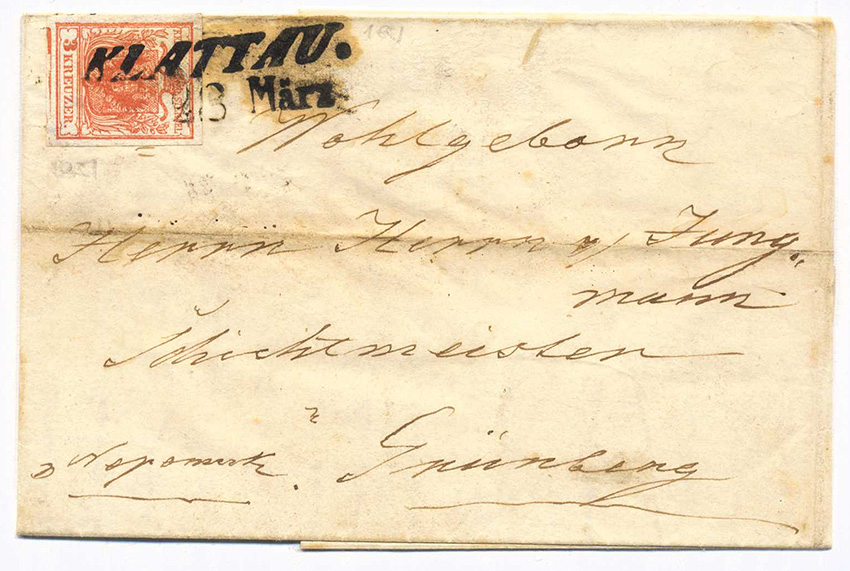 KLATTAU.
3 KREUZER.
März
Wohlgeborn
Herrn Herrn v/ Jung„
mann
Schichtmeister
Nepomuk. Grünberg